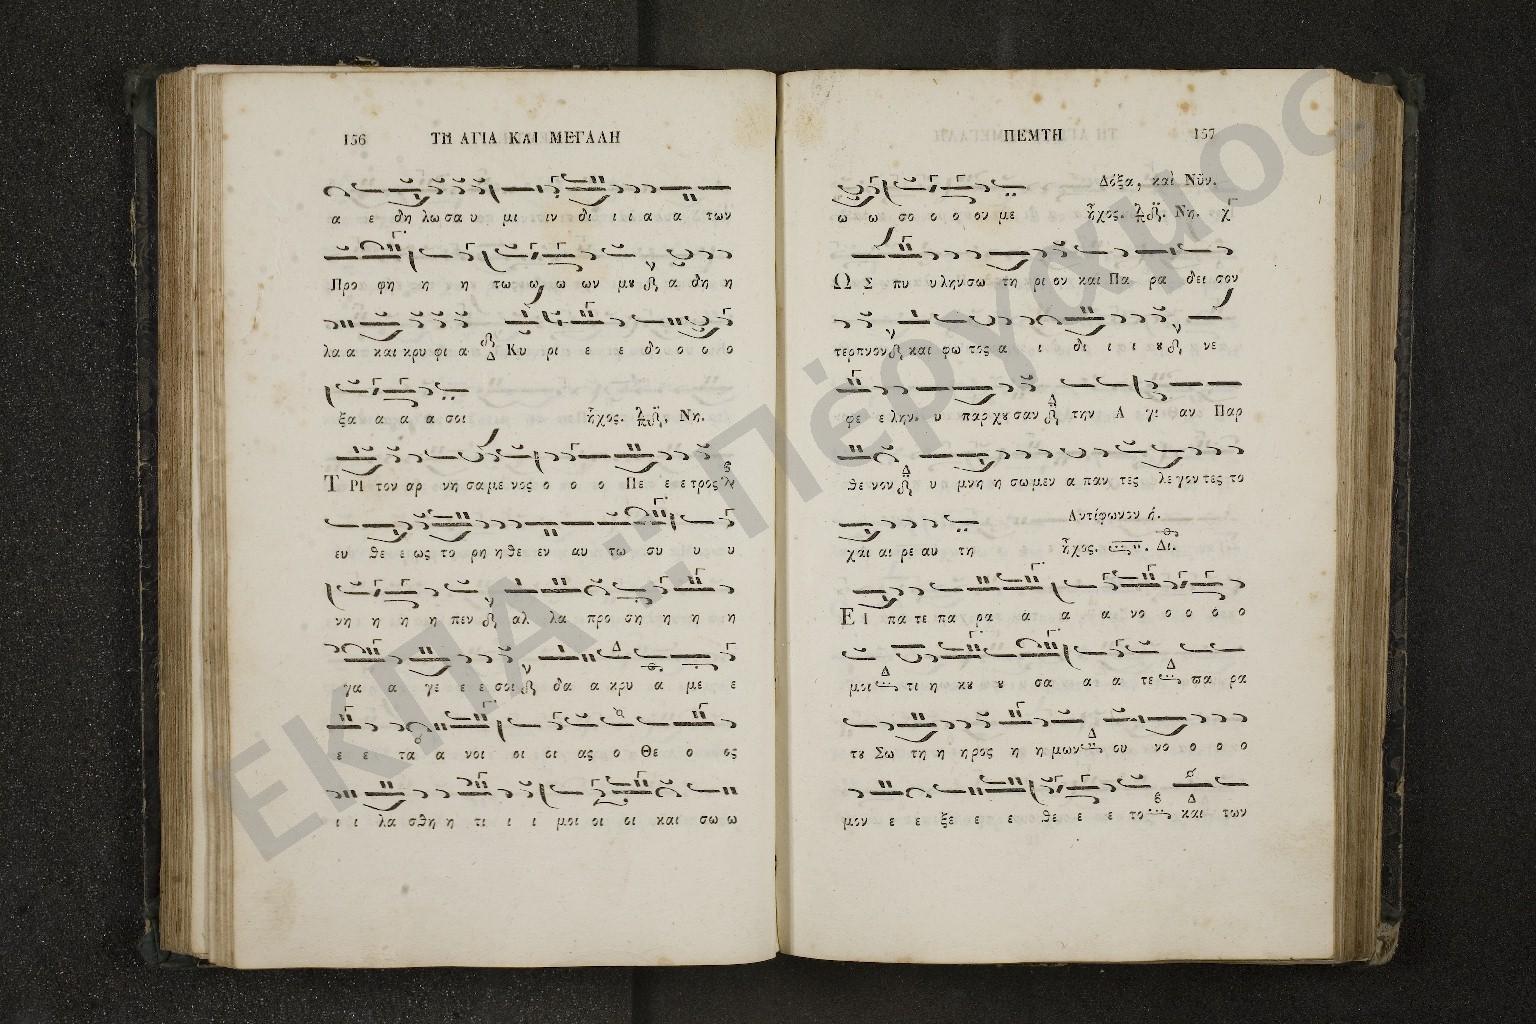 156 ΤΗ ΑΓΙΑ ΚΑΙ ΜΕΓΑΛΗ
α ε δη λω σα υ μι ιν δι ι ι α α των
Προ φη η η τω ω ω ων μου α δη η
λα α και κρυ φι α Κυ ρι ε ε δο ο ο ο
ξα α α α σοι ἦχος. Νη.
Τ ΡΙ τον αρ νη σα με νος ο ο ο Πε ε ε τρος
ευ θε ε ως το ρη η θε εν αυ τω συ υ υ
νη η η η πεν αλ λα προ ση η η η
γα α γε ε ε σοι δα α κρυ α με ε
ε ε τα α νοι οι οι ας ο Θε ο ος
ι ι λα σθη η τι ι ι μοι οι οι και σω ω
ΠΕΜΤΗ 157
ω ω σο ο ο ον με Δόξα, καὶ Νῦν.
ἦχος. Νη.
Ω Σ πυ υ λην σω τη ρι ον και Πα ρα δει σον
τερπνον και φω τος α ι δι ι ι ου νε
φε ε λην. υ παρ χου σαν την Α γι αν Παρ
θε νον υ μνη η σω μεν α παν τες λε γον τες το
χαι αι ρε αυ τη Αντίφωνον ή.
ἦχος. Δι.
Ε Ι πα τε πα ρα α α α νο ο ο ο ο
μοι τι η κου ου σα α α τε πα ρα
του Σω τη η ηρος η η μων ου νο ο ο ο
μον ε ε ξε ε ε θε ε ε το και των
ΕΚΠΑ::Πέργαμος